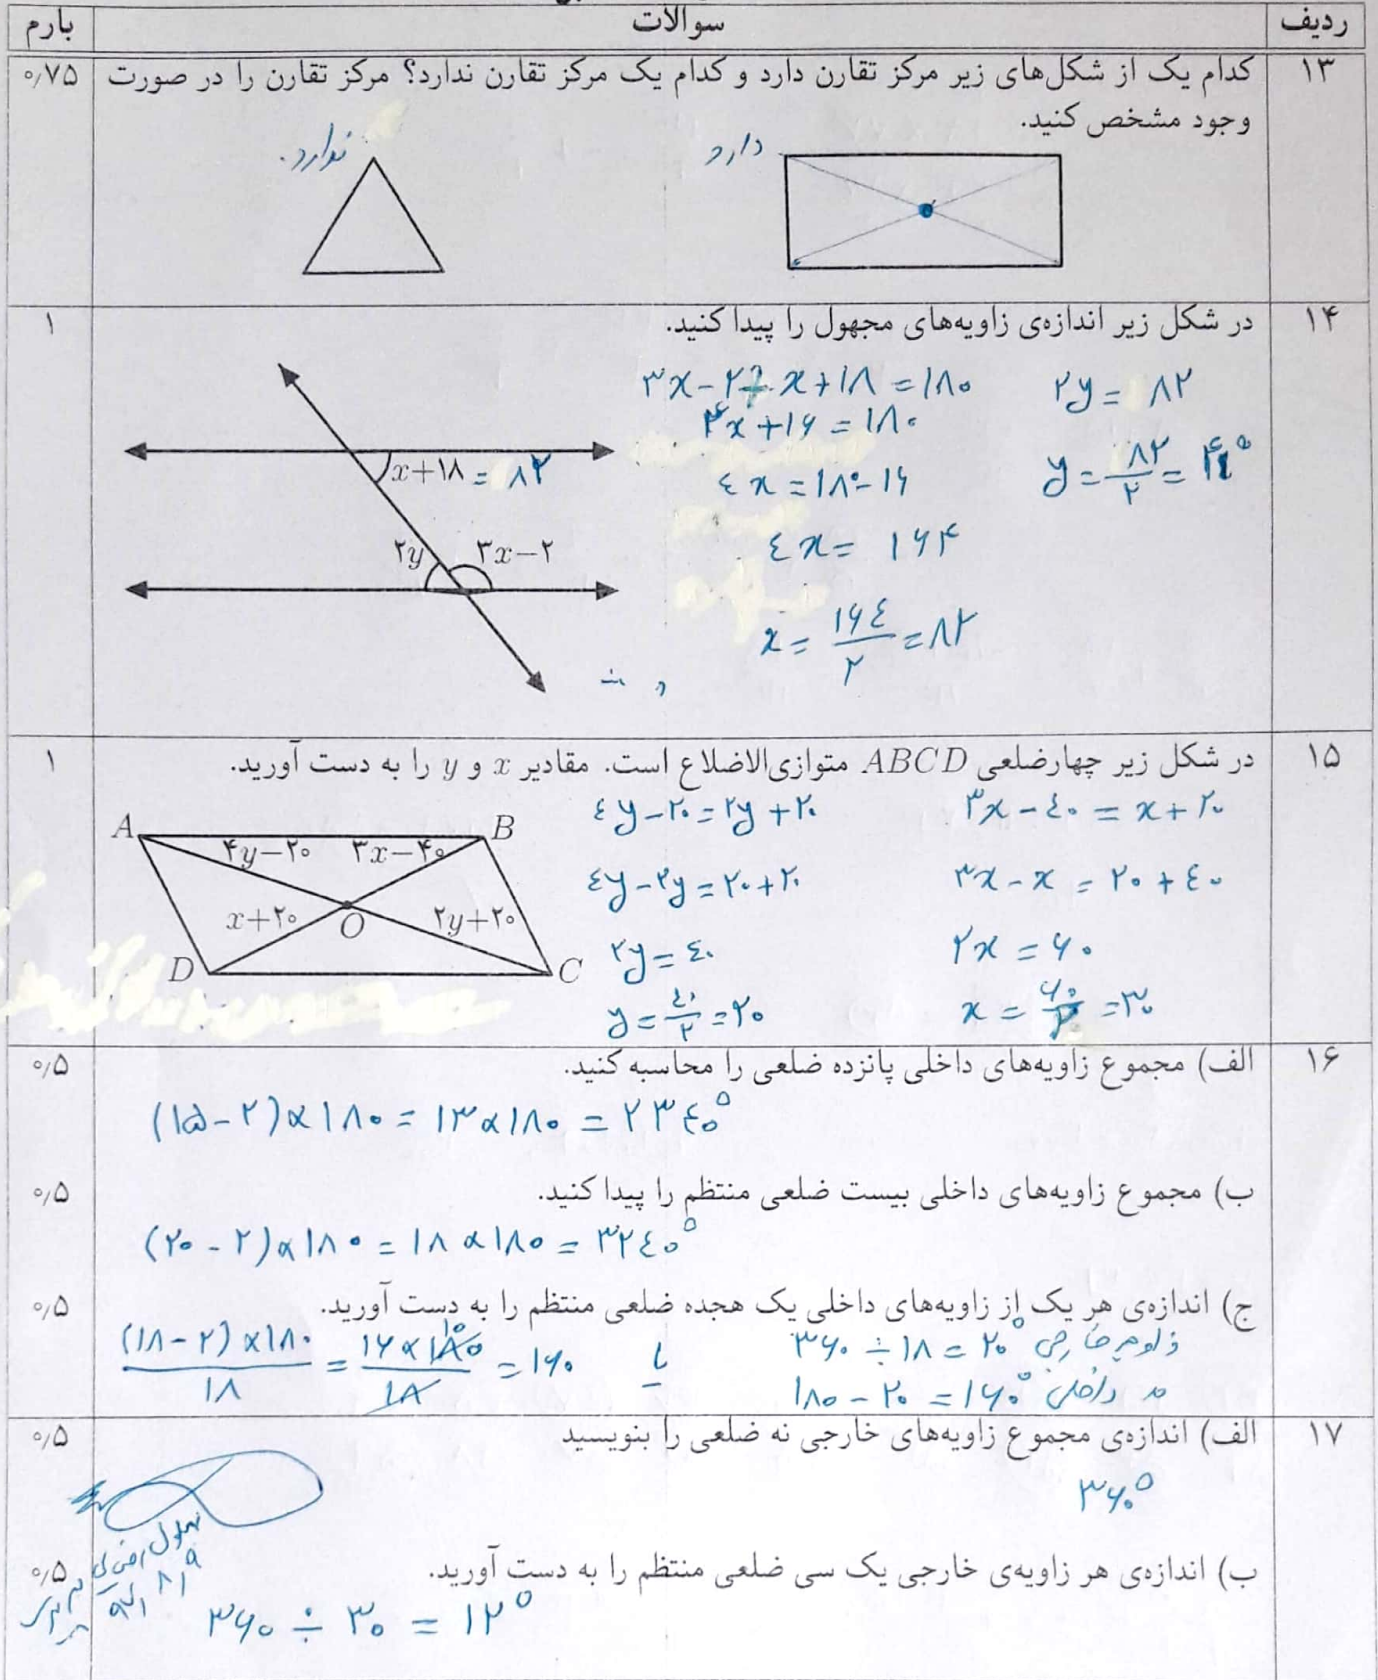 ردیف سوالات بارم
۱۳ کدام یک از شکل‌های زیر مرکز تقارن دارد و کدام یک مرکز تقارن ندارد؟ مرکز تقارن را در صورت ۰/۷۵
وجود مشخص کنید.
دارد ندارد.
۱۴ در شکل زیر اندازه‌ی زاویه‌های مجهول را پیدا کنید. ۱
۳x-۲+x+۱۸=۱۸۰
۴x+۱۶=۱۸۰
۴x=۱۸۰-۱۶
۴x=۱۶۴
x=۱۶۴/۲=۸۲
۲y=۸۲
y=۸۲/۲=۴۱°
x+۱۸=۸۲
۲y ۳x-۲
۱۵ در شکل زیر چهارضلعی ABCD متوازی‌الاضلاع است. مقادیر x و y را به دست آورید. ۱
A B
۴y-۲۰ ۳x-۴۰
x+۲۰ O ۲y+۲۰
D C
۴y-۲۰=۲y+۲۰
۴y-۲y=۲۰+۲۰
۲y=۴۰
y=۴۰/۲=۲۰
۳x-۴۰=x+۲۰
۳x-x=۲۰+۴۰
۲x=۶۰
x=۶۰/۲=۳۰
۱۶ الف) مجموع زاویه‌های داخلی پانزده ضلعی را محاسبه کنید. ۰/۵
(۱۵-۲)×۱۸۰=۱۳×۱۸۰=۲۳۴۰°
ب) مجموع زاویه‌های داخلی بیست ضلعی منتظم را پیدا کنید. ۰/۵
(۲۰-۲)×۱۸۰=۱۸×۱۸۰=۳۲۴۰°
ج) اندازه‌ی هر یک از زاویه‌های داخلی یک هجده ضلعی منتظم را به دست آورید. ۰/۵
زاویه خارجی ۳۶۰÷۱۸=۲۰°
داخلی ۱۸۰-۲۰=۱۶۰°
یا
(۱۸-۲)×۱۸۰/۱۸=۱۶×۱۸۰/۱۸=۱۶۰
۱۰
۱۷ الف) اندازه‌ی مجموع زاویه‌های خارجی نه ضلعی را بنویسید ۰/۵
۳۶۰°
ب) اندازه‌ی هر زاویه‌ی خارجی یک سی ضلعی منتظم را به دست آورید. ۰/۵
۳۶۰÷۳۰=۱۲°